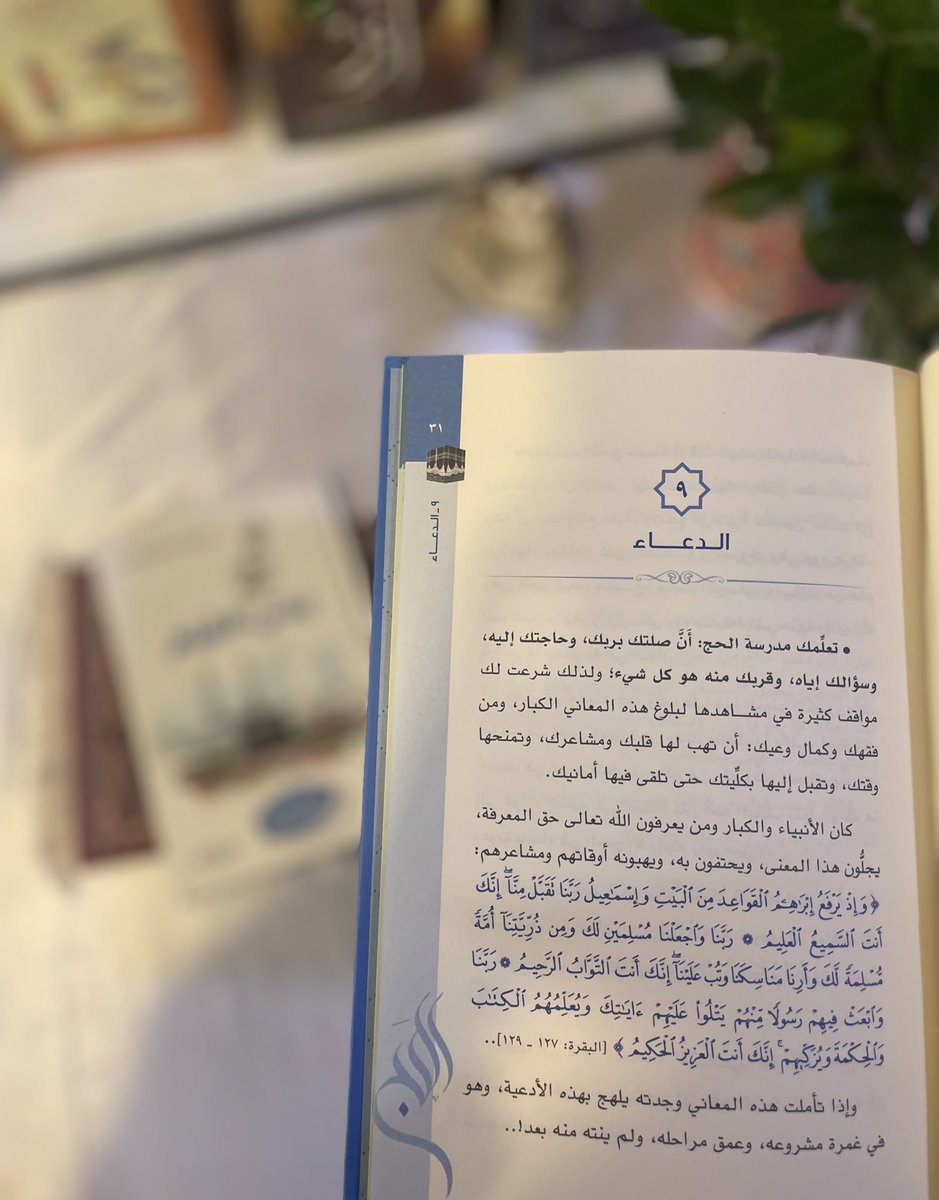 ٣١
٩ـ الدعـــاء
٩
الدعـــاء
• تعلِّمك مدرسة الحج: أَنَّ صلتك بربك، وحاجتك إليه،
وسؤالك إياه، وقربك منه هو كل شيء؛ ولذلك شرعت لك
مواقف كثيرة في مشـــاهدها لبلوغ هذه المعاني الكبار، ومن
فقهك وكمال وعيك: أن تهب لها قلبك ومشاعرك، وتمنحها
وقتك، وتقبل إليها بكلِّيتك حتى تلقى فيها أمانيك.
كان الأنبياء والكبار ومن يعرفون الله تعالى حق المعرفة،
يجلُّون هذا المعنى، ويحتفون به، ويهبونه أوقاتهم ومشاعرهم:
﴿وَإِذْ يَرْفَعُ إِبْرَٰهِـۧمُ ٱلْقَوَاعِدَ مِنَ ٱلْبَيْتِ وَإِسْمَٰعِيلُ رَبَّنَا نَقَبَّلْ مِنَّآ ۖ إِنَّكَ
أَنتَ ٱلسَّمِيعُ ٱلْعَلِيمُ ۞ رَبَّنَا وَٱجْعَلْنَا مُسْلِمَيْنِ لَكَ وَمِن ذُرِّيَّتِنَآ أُمَّةً
مُّسْلِمَةً لَّكَ وَأَرِنَا مَنَاسِكَنَا وَتُبْ عَلَيْنَآ ۖ إِنَّكَ أَنتَ ٱلتَّوَّابُ ٱلرَّحِيمُ ۞ رَبَّنَا
وَٱبْعَثْ فِيهِمْ رَسُولًا مِّنْهُمْ يَتْلُوا۟ عَلَيْهِمْ ءَايَٰتِكَ وَيُعَلِّمُهُمُ ٱلْكِتَٰبَ
وَٱلْحِكْمَةَ وَيُزَكِّيهِمْ ۚ إِنَّكَ أَنتَ ٱلْعَزِيزُ ٱلْحَكِيمُ﴾ [البقرة: ١٢٧ ـ ١٢٩]..
وإذا تأملت هذه المعاني وجدته يلهج بهذه الأدعية، وهو
في غمرة مشروعه، وعمق مراحله، ولم ينته منه بعد!..